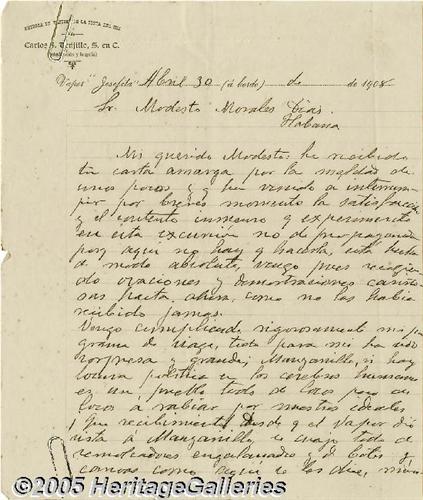 EMPRESA DE VAPORES DE LA COSTA DEL SUR
Carlos J. Trujillo, S. en C.
Vapor "Josefita" Abril 30 (á bordo) de de 1908
Sr. Modesto Morales Diaz
Habana
Mi querido Modesto: he recibido
tu carta amarga por la maldad de
unos pocos, y q ha venido a interrum-
pir por breves momentos la satisfacción
y el contento inmenso q experimento
en esta excursión no de propaganda
porq aquí no hay q hacerla, está hecha
de modo absoluto, vengo pues recogien-
do ovaciones y demostraciones cariño-
sas hasta ahora, como no las había
recibido jamas.
Vengo cumpliendo rigorosamente mi pro-
grama de viage, todo para mi ha sido
sorpresa y grande; Manzanillo, si hay
locura política en los cerebros humanos
es un pueblo todo de locos pero de
locos a rabiar por nuestros ideales
¡Que recibimiento! Desde q el vapor dió
vista á Manzanillo, se cuajó todo de
remolcadores engalanados y d botes y
canoas como aquí se les dice,
©2005 HeritageGalleries